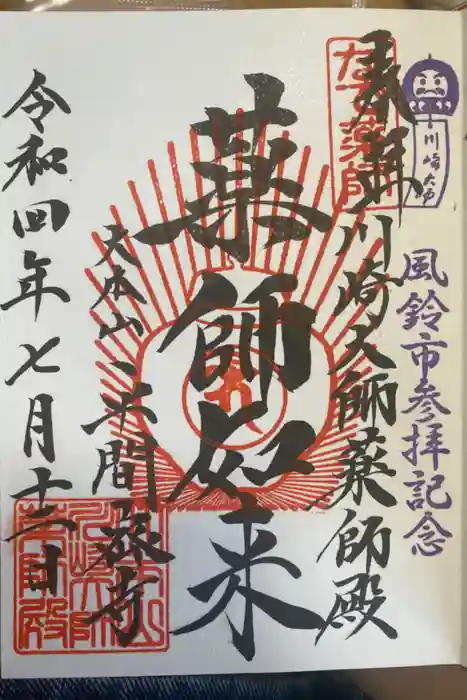 川崎大師
風鈴市参拝記念
奉拝
なで薬師
川崎大師薬師殿
薬師如来
大本山
平間寺
令和四年七月十二日